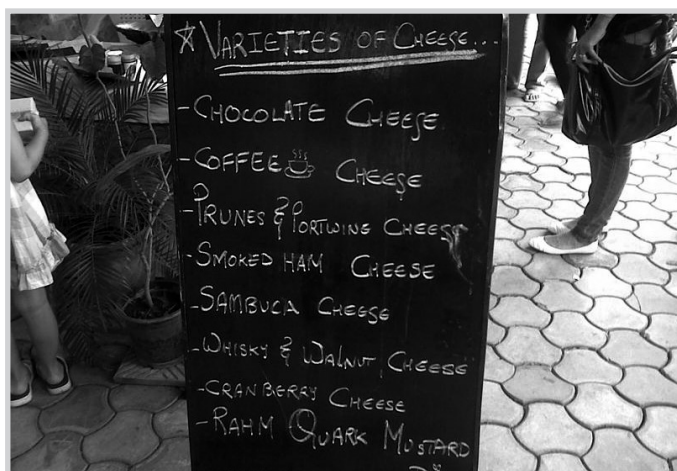 * VARIETIES OF CHEESE...
- CHOCOLATE CHEESE
- COFFEE CHEESE
- PRUNES & PORTWINE CHEESE
- SMOKED HAM CHEESE
- SAMBUCA CHEESE
- WHISKY & WALNUT CHEESE
- CRANBERRY CHEESE
- RAHM QUARK MUSTARD